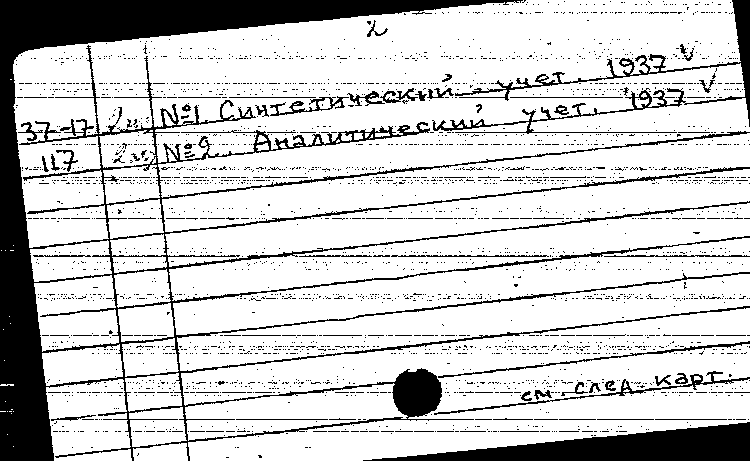 2
37-17 2 экз №1. Синтетический учет. 1937 V
117 2 экз №2. Аналитический учет. 1937 V
см. след. карт.